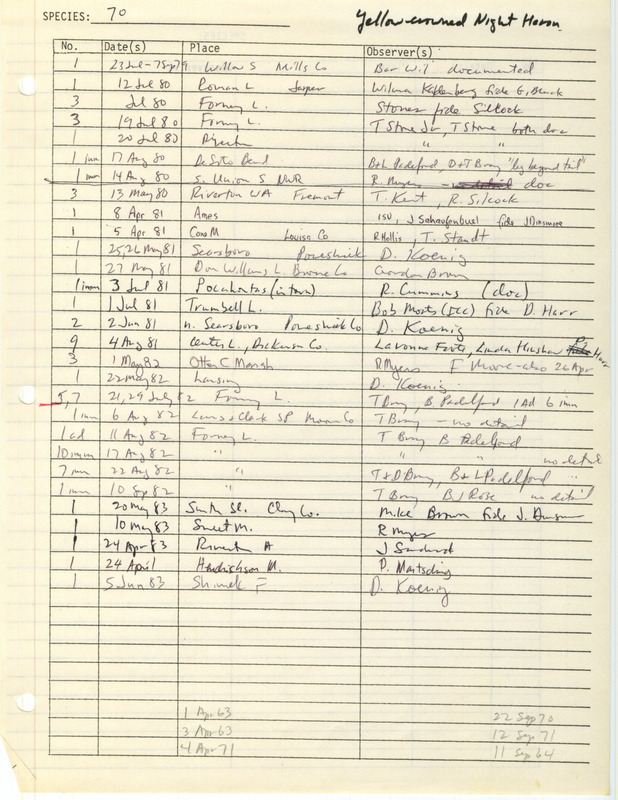 SPECIES: 70 Yellow-crowned Night Heron
No. Date(s) Place Observer(s)
1 23 Jul - 7 Sep 79 Willow S Mills Co documented
1 12 Jul 80 L Jasper Wilma fide G. Black
3 Jul 80 Forney L. Stones fide Silcock
3 19 Jul 80 Forney L. T Stone Jr, T Stone both doc
1 20 Jul 80 Riverton " "
1 imm 17 Aug 80 DeSoto Bend B+L Padelford, D+T Bray "leg beyond tail"
1 imm 14 Aug 80 S. Union S NWR R. Myers - doc
3 13 May 80 Riverton WA Fremont T. Kent, R. Silcock
1 8 Apr 81 Ames ISU, J Schaufenbuel fide J Dinsmore
1 5 Apr 81 Cone M Louisa Co R Hollis, T. Staudt
1 25, 26 May 81 Searsboro Poweshiek D. Koenig
1 27 May 81 Don Williams L. Boone Co Gordon Brown
1 imm 3 Jul 81 Pocahontas (in town) R. Cummins (doc)
1 1 Jul 81 Trumbull L. Bob Moats (ICC) fide D. Harr
2 2 Jun 81 n. Searsboro Poweshiek Co D. Koenig
9 4 Aug 81 Center L., Dickinson Co. LaVonne Foote, Linda Hinshaw fide Harr
3 1 May 82 Otter C Marsh R Myers F Moore - also 26 Apr
1 22 May 82 Lansing D. Koenig
5, 7 21, 29 July 82 Forney L. T Bray, B. Padelford 1 Ad 6 imm
1 imm 6 Aug 82 Lewis + Clark SP Mona Co T Bray - no detail
1 ad 11 Aug 82 Forney L. T Bray B Padelford
10 imm 17 Aug 82 " " no detail
7 imm 22 Aug 82 " T+D Bray, B+L Padelford "
1 imm 10 Sep 82 T Bray B J Rose no detail
1 20 May 83 Smith Sl. Clay Co. Mike Brown fide J. Dinsmore
1 10 May 83 Sweet M. R Myers
1 24 Apr 83 Riverton A J Sandrock
1 24 April Hendrickson M. D. Martsching
1 5 Jun 83 Shimek F D. Koenig
1 Apr 63 22 Sep 70
3 Apr 63 12 Sep 71
4 Apr 71 11 Sep 64